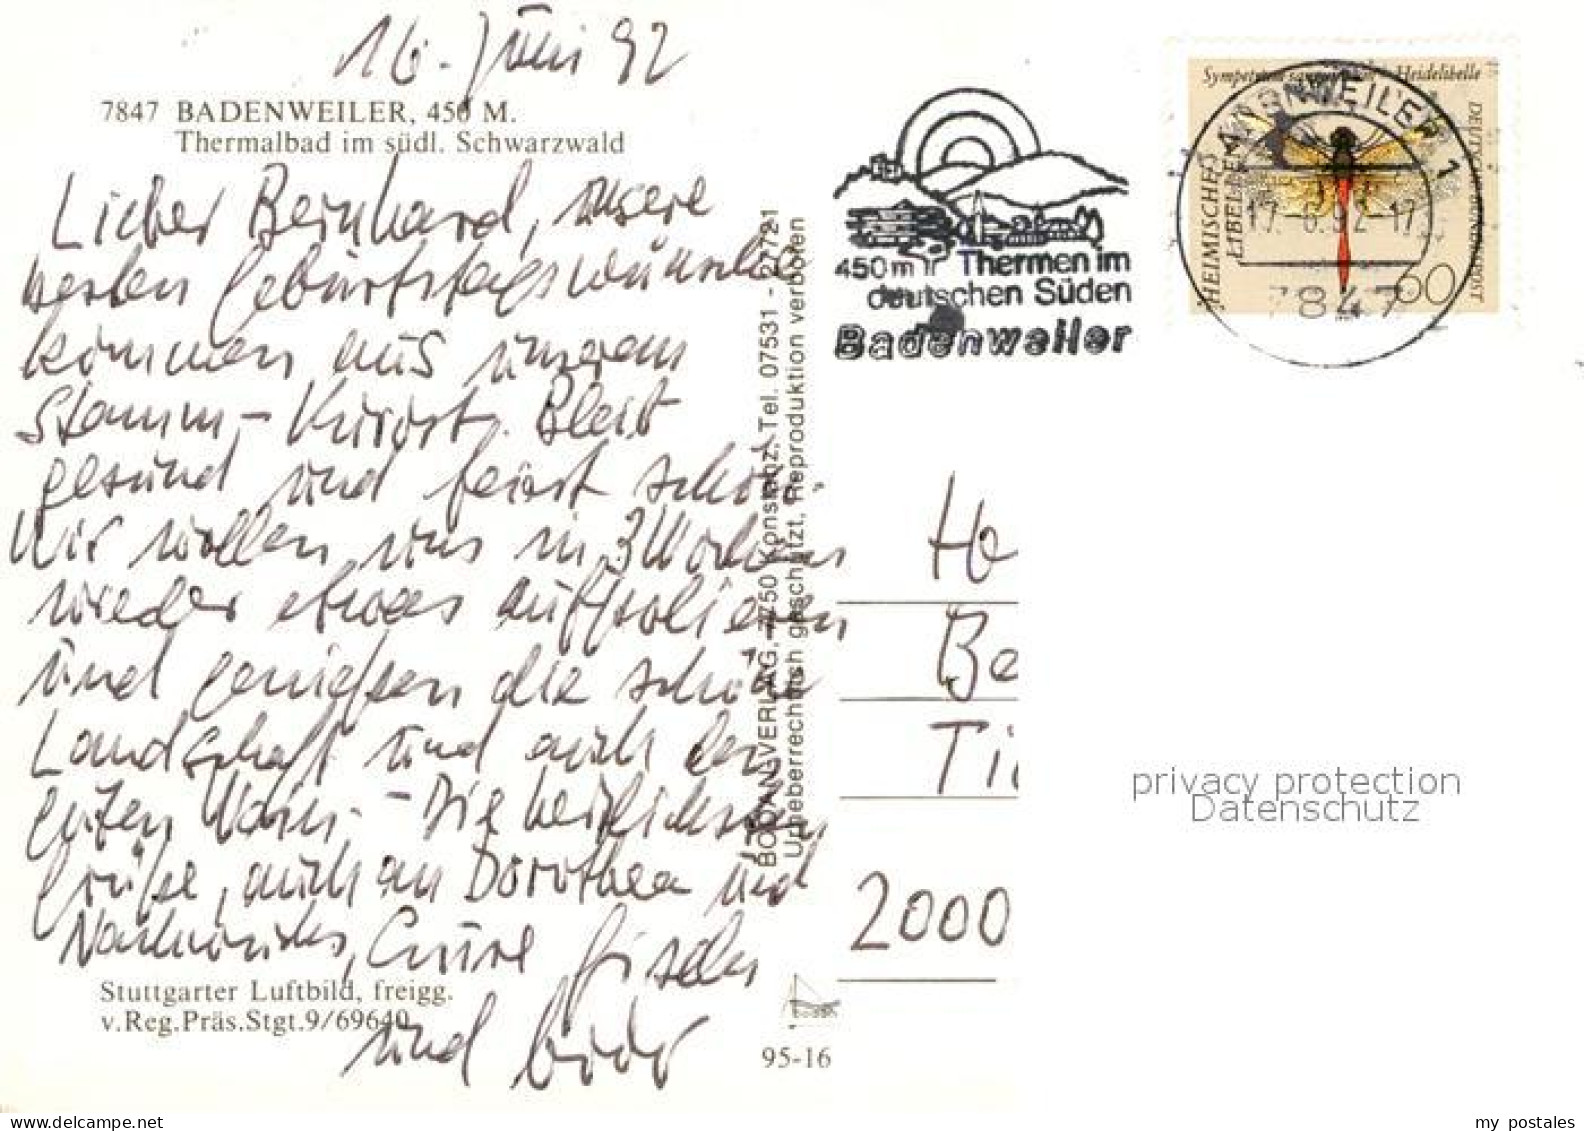 16. Juni 92
7847 BADENWEILER, 450 M.
Thermalbad im südl. Schwarzwald
Lieber Bernhard, unsere
besten Geburtstagswünsche
kommen aus unserem
Stamm-Kurort. Bleibt
gesund und feiert schön.
Wir wollen uns in 3 Wochen
wieder etwas aufpolieren
und genießen die schöne
Landschaft und auch den
guten Wein. - Die herzlichsten
Grüße, auch an Dorothea und
Eure
und
Stuttgarter Luftbild, freigg.
v.Reg.Präs.Stgt.9/69640
BODAN-VERLAG, 7750 Konstanz, Tel. 07531 - 27721
Urheberrechtlich geschützt, Reproduktion verboten
bodan
95-16
450 m
Thermen im
deutschen Süden
Badenweiler
Heidelibelle
HEIMISCHES
LIBELLEN
DEUTSCHE BUNDESPOST
60
BADENWEILER 1
17.-6.92-17
7847
He
Be
Ti
2000
privacy protection
Datenschutz
delcampe.net
my postales